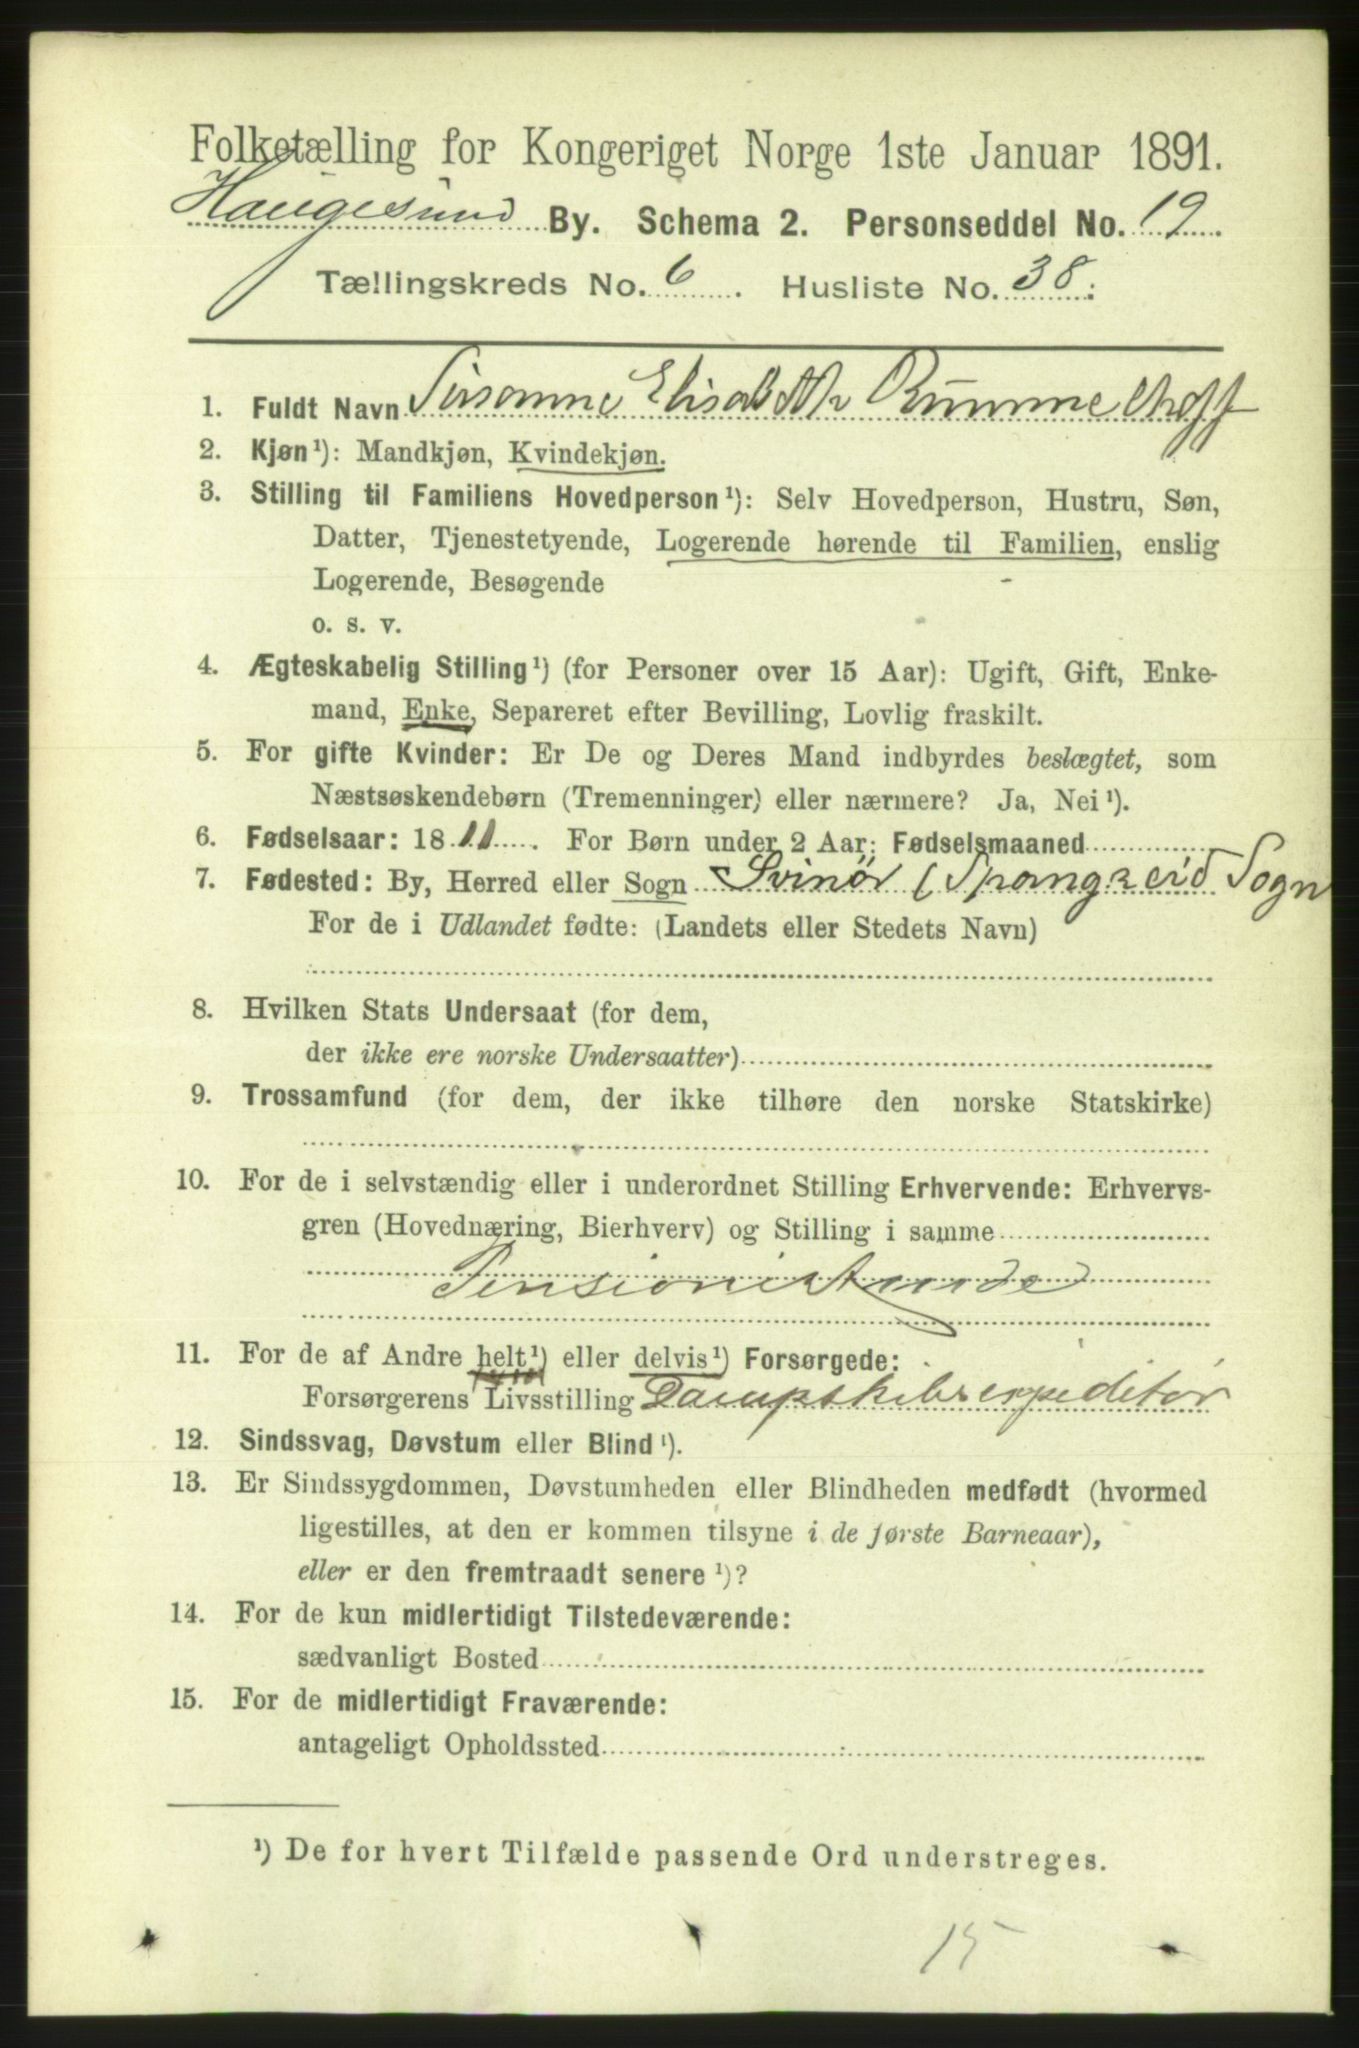 Folketælling for Kongeriget Norge 1ste Januar 1891.
Haugesund By. Schema 2. Personseddel No. 19
Tællingskreds No. 6. Husliste No. 38:
1. Fuldt Navn Susanne Elisabeth Rummelhoff
2. Kjøn¹): Mandkjøn, Kvindekjøn.
3. Stilling til Familiens Hovedperson¹): Selv Hovedperson, Hustru, Søn,
Datter, Tjenestetyende, Logerende hørende til Familien, enslig
Logerende, Besøgende
o. s. v.
4. Ægteskabelig Stilling¹) (for Personer over 15 Aar): Ugift, Gift, Enke-
mand, Enke, Separeret efter Bevilling, Lovlig fraskilt.
5. For gifte Kvinder: Er De og Deres Mand indbyrdes beslægtet, som
Næstsøskendebørn (Tremenninger) eller nærmere? Ja, Nei¹).
6. Fødselsaar: 1811. For Børn under 2 Aar: Fødselsmaaned
7. Fødested: By, Herred eller Sogn Svinör (Spangreid Sogn
For de i Udlandet fødte: (Landets eller Stedets Navn)
8. Hvilken Stats Undersaat (for dem,
der ikke ere norske Undersaatter)
9. Trossamfund (for dem, der ikke tilhøre den norske Statskirke)
10. For de i selvstændig eller i underordnet Stilling Erhvervende: Erhvervs-
gren (Hovednæring, Bierhverv) og Stilling i samme
Pensionistinde
11. For de af Andre helt¹) eller delvis¹) Forsørgede:
Forsørgerens Livsstilling Dampskibsexpeditör
12. Sindssvag, Døvstum eller Blind¹).
13. Er Sindssygdommen, Døvstumheden eller Blindheden medfødt (hvormed
ligestilles, at den er kommen tilsyne i de første Barneaar),
eller er den fremtraadt senere¹)?
14. For de kun midlertidigt Tilstedeværende:
sædvanligt Bosted
15. For de midlertidigt Fraværende:
antageligt Opholdssted
¹) De for hvert Tilfælde passende Ord understreges.
15